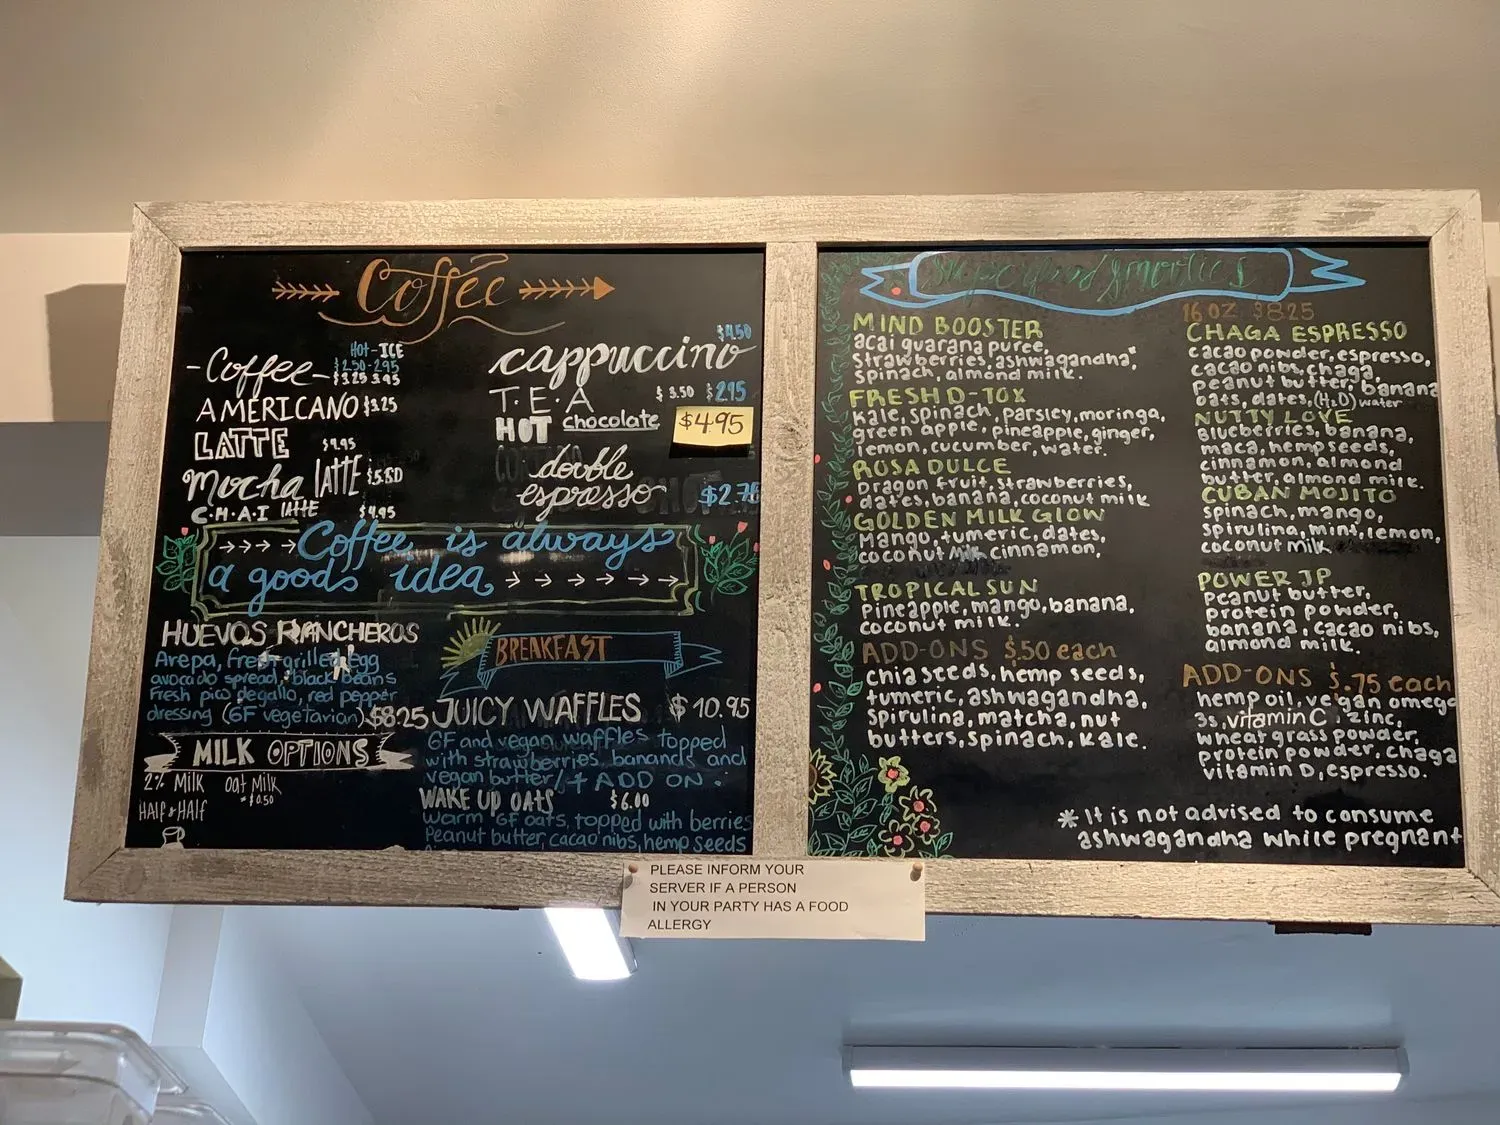 Coffee
HOT-ICE
-Coffee- $2.50-2.95
$3.25 3.95
AMERICANO $3.25
LATTE $4.95
Mocha LATTE $5.50
C.H.A.I LATTE $4.95
$4.50
cappuccino
T.E.A $3.50 $2.95
HOT chocolate $4.95
double
espresso $2.75
Coffee is always
a good idea
HUEVOS RANCHEROS
Arepa, fresh grilled egg
avocado spread, black beans
Fresh pico de gallo, red pepper
dressing (GF vegetarian) $8.25
MILK OPTIONS
2% Milk oat Milk
+$0.50
HALF & HALF
BREAKFAST
JUICY WAFFLES $10.95
GF and vegan waffles topped
with strawberries, banana and
vegan butter/+ ADD ON:
WAKE UP OATS $6.00
Warm GF oats, topped with berries
Peanut butter, cacao nibs, hemp seeds
Superfood Smoothies
16 OZ $8.25
MIND BOOSTER
acai guarana puree,
strawberries, ashwagandha*
spinach, almond milk.
FRESH D-TOX
Kale, spinach, parsley, moringa,
green apple, pineapple, ginger,
lemon, cucumber, water.
ROSA DULCE
Dragon fruit, strawberries,
dates, banana, coconut milk
GOLDEN MILK GLOW
Mango, tumeric, dates,
coconut milk cinnamon,
TROPICAL SUN
pineapple, mango, banana,
coconut milk.
ADD-ONS $.50 each
chia seeds, hemp seeds,
tumeric, ashwagandha,
spirulina, matcha, nut
butters, spinach, kale.
CHAGA ESPRESSO
cacao powder, espresso,
cacao nibs, chaga,
peanut butter, banana
oats, dates, (H2O) water
NUTTY LOVE
blueberries, banana,
maca, hemp seeds,
cinnamon, almond
butter, almond milk.
CUBAN MOJITO
spinach, mango,
spirulina, mint, lemon,
coconut milk
POWER JP
Peanut butter,
protein powder,
banana, cacao nibs,
almond milk.
ADD-ONS $.75 each
hemp oil, vegan omega
3s, vitamin C, zinc,
wheatgrass powder,
protein powder, chaga
vitamin D, espresso.
* It is not advised to consume
ashwagandha while pregnant
PLEASE INFORM YOUR
SERVER IF A PERSON
IN YOUR PARTY HAS A FOOD
ALLERGY